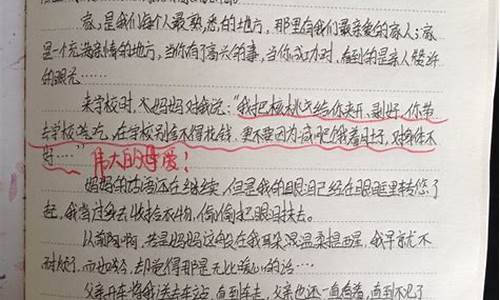 家，是我们每个人最熟悉的地方，那里有我们最亲爱的家人；家
是一个充满亲情的地方，当你有了高兴的事，当你成功时，看到的是亲人赞许
的眼光……
来学校时，妈妈对我说："我把核桃给你夹开、剥好，你带
去学校吃，在学校别舍不得花钱，更不要因为减肥饿着肚子，对身体不
好……"伟大的母爱！
妈妈的话还在继续，但是我的眼泪已经在眼眶里转悠了
起，我背过身去收拾衣物，偷偷把眼泪抹去。
以前啊，若是妈妈这般在我耳朵温柔提醒，我早就不
耐烦了，而如今，却觉得那是无比暖心的话……
父亲开车将我送去车站，直到车走，父亲也还一直看着，直到不见了